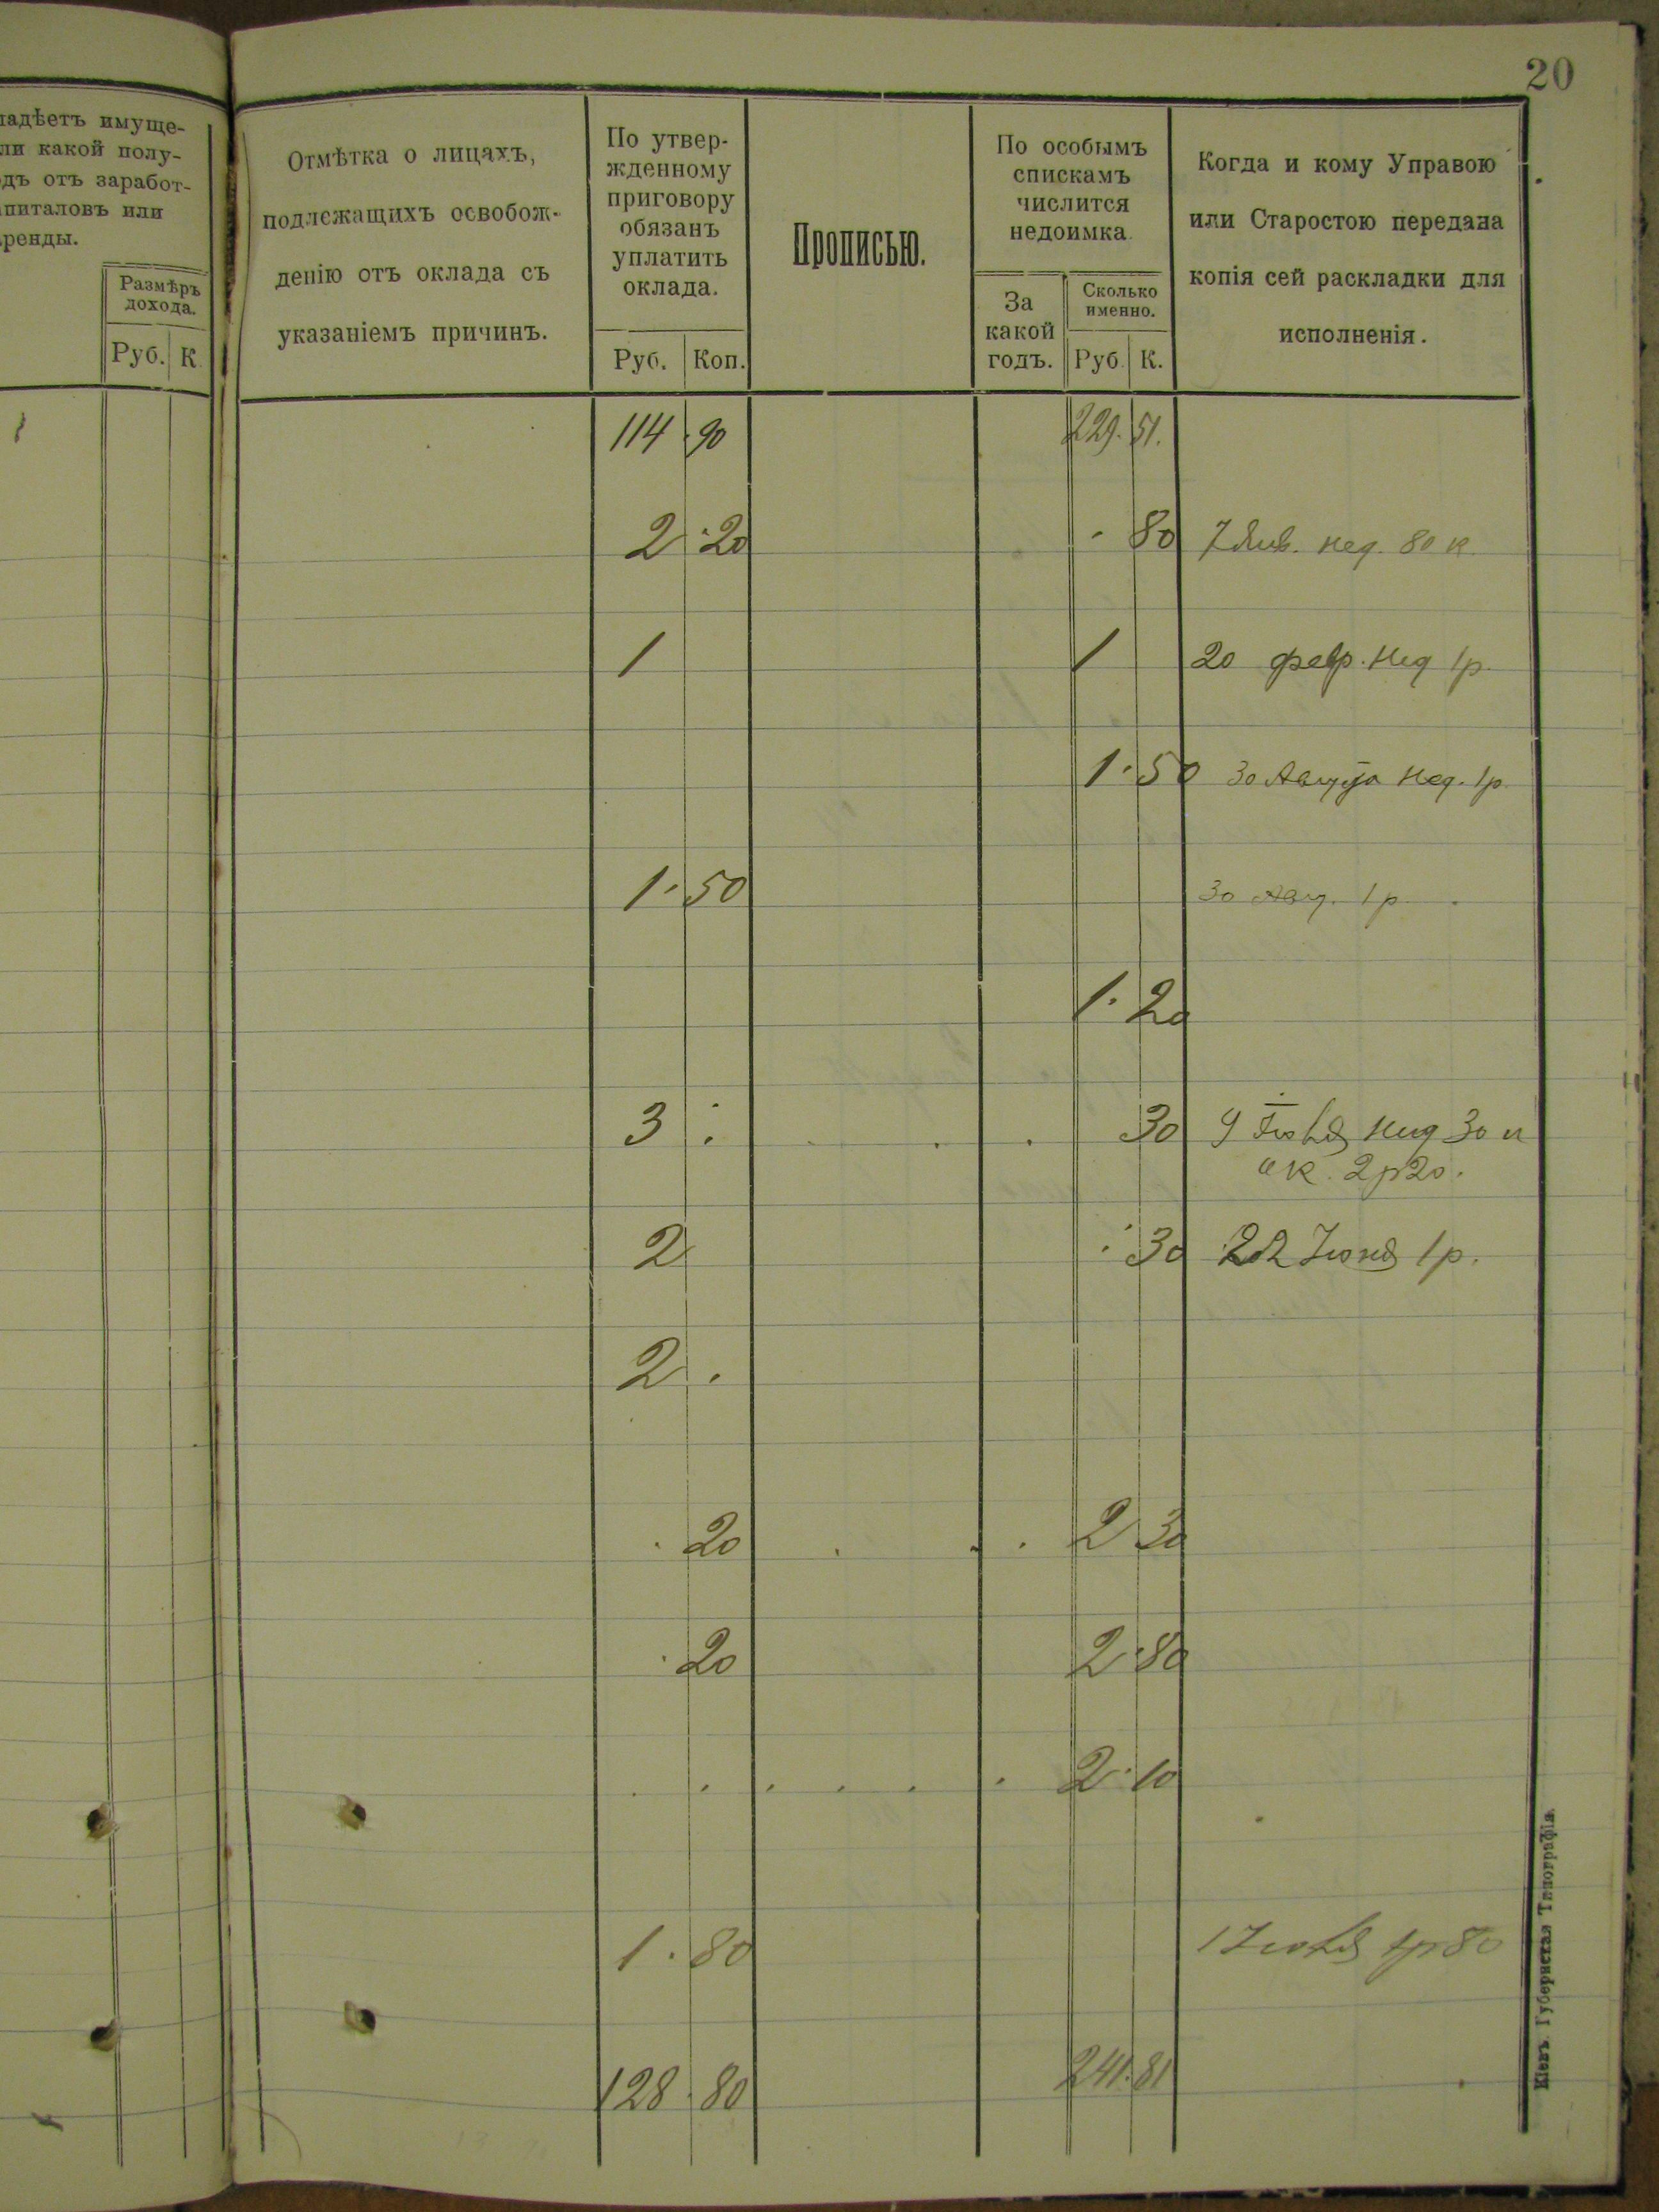 20
ладѣетъ имуще-
ли какой полу-
одъ отъ заработ-
апиталовъ или
аренды.
Размѣръ
дохода.
Руб. К.
Отмѣтка о лицахъ,
подлежащихъ освобож-
денію отъ оклада съ
указаніемъ причинъ.
По утвер-
жденному
приговору
обязанъ
уплатить
оклада.
Руб. Коп.
Прописью.
По особымъ
спискамъ
числится
недоимка.
За
какой
годъ.
Сколько
именно.
Руб. К.
Когда и кому Управою
или Старостою передана
копія сей раскладки для
исполненія.
114 . 90 229. 51.
2 . 20 . 80 7 Янв. нед. 80 к.
1 1 20 февр. нед 1р.
1 . 50 30 Августа нед. 1р.
1 . 50 30 Авг. 1 р
1 . 20
3 : 30 9 Іюля нед 30 к
ок. 2р20.
2 . 30 22 Іюня 1р.
2 .
. 20 2 30
. 20 2 . 80
2 . 10
1 . 80 1 Іюля 1р80
128 . 80 241. 81
Кіевъ. Губернская Типографія.